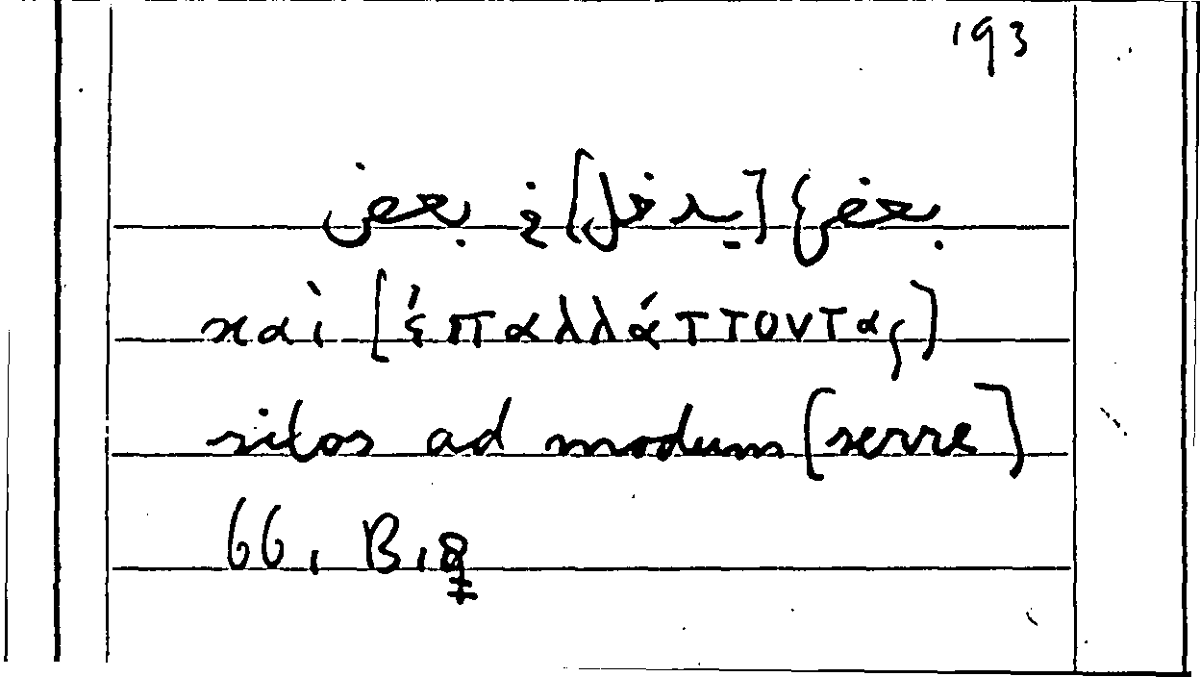 193
بعض}[يدخل] في بعض
καὶ [ἐπαλλάττοντας]
sitos ad modum [serre]
66, B, 8